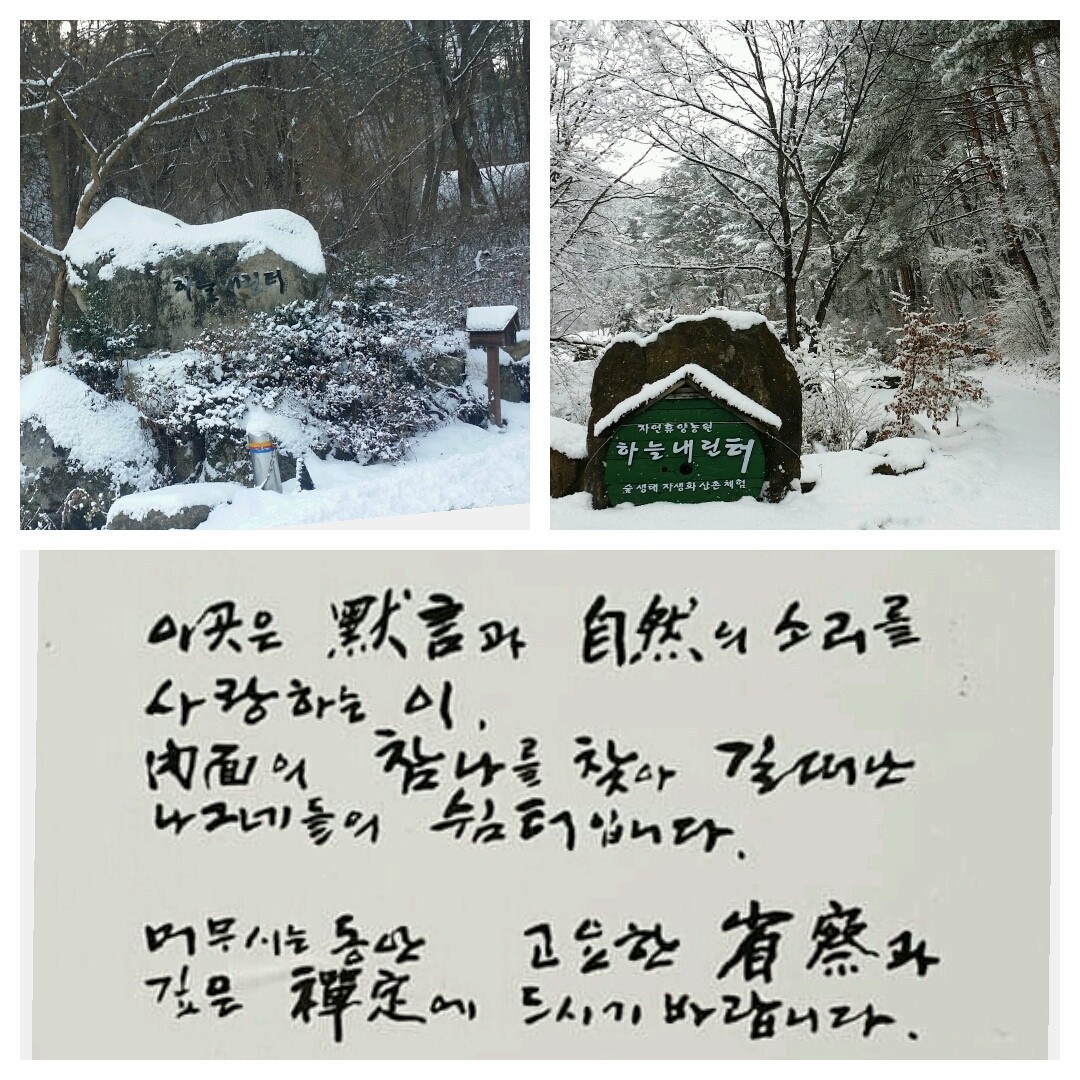 하늘내린터
자연휴양농원
하늘내린터
숲생태 자생화 산촌체험
이곳은 默言과 自然의 소리를
사랑하는 이,
内面의 참나를 찾아 길떠난
나그네들의 쉼터입니다.
머무시는 동안 고요한 省察과
깊은 禪定에 드시기 바랍니다.